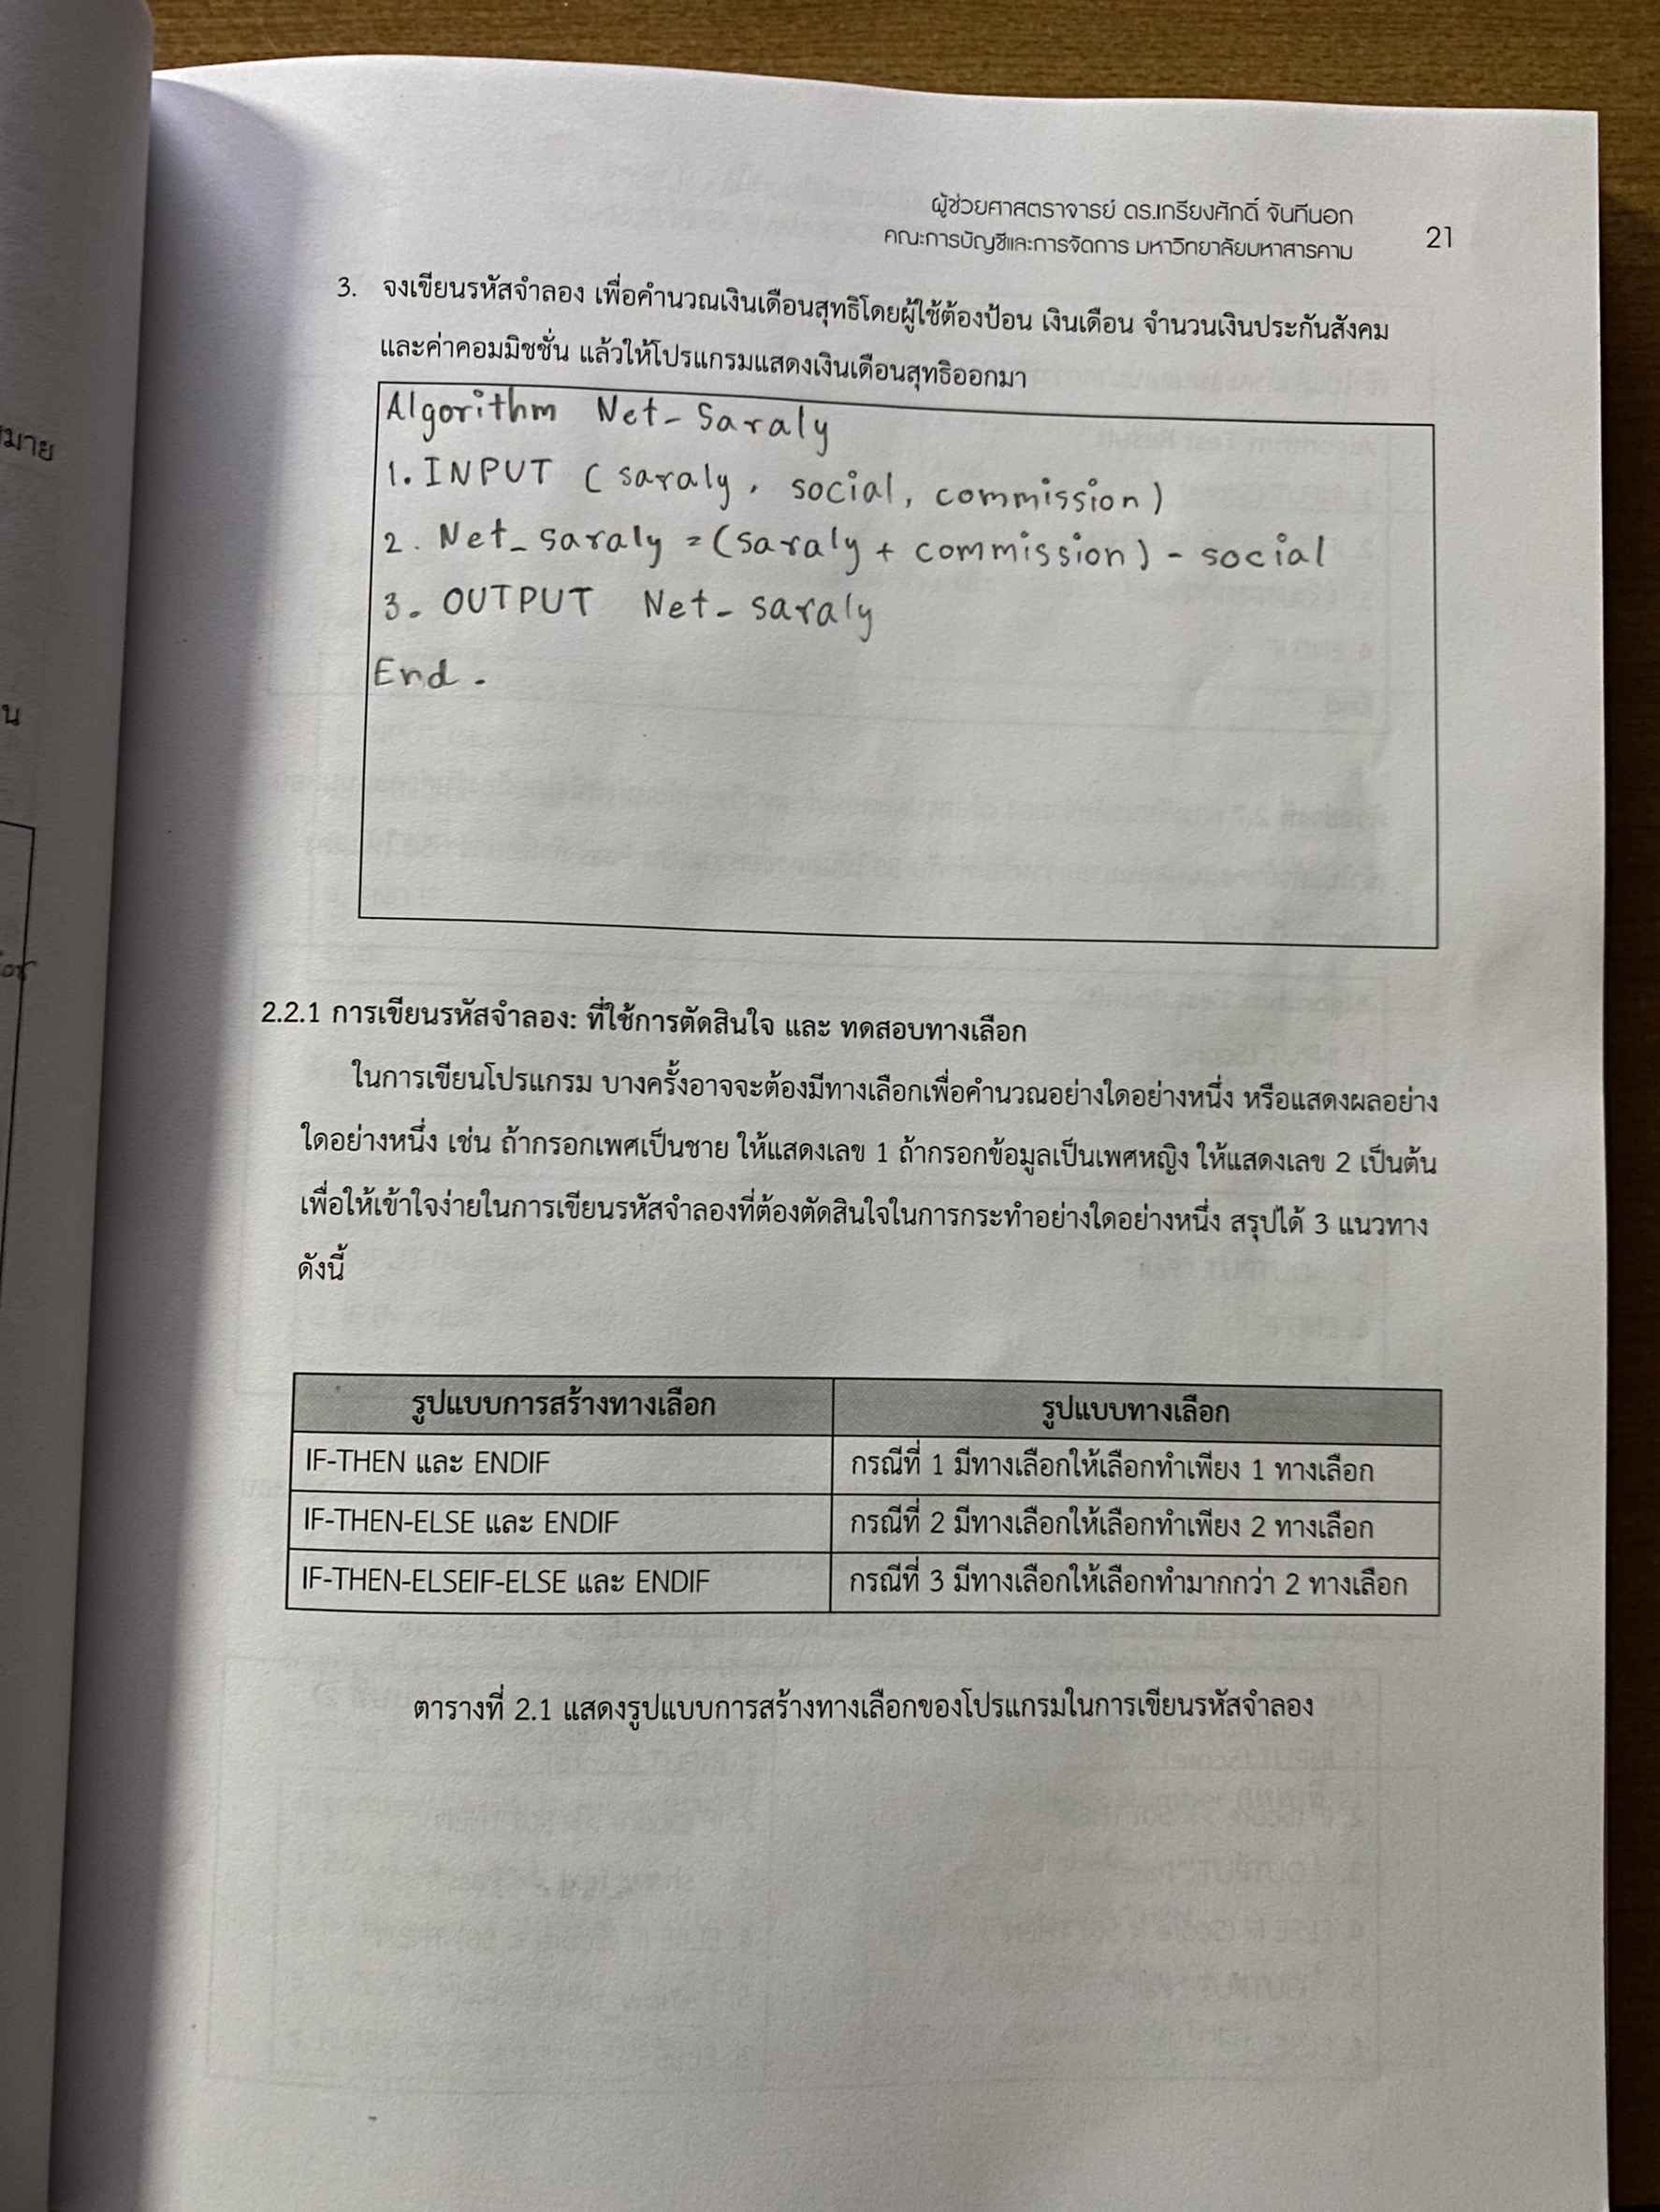 ผู้ช่วยศาสตราจารย์ ดร.เกรียงศักดิ์ จันทีนอก
คณะการบัญชีและการจัดการ มหาวิทยาลัยมหาสารคาม
21
3. จงเขียนรหัสจำลอง เพื่อคำนวณเงินเดือนสุทธิโดยผู้ใช้ต้องป้อน เงินเดือน จำนวนเงินประกันสังคม
และค่าคอมมิชชั่น แล้วให้โปรแกรมแสดงเงินเดือนสุทธิออกมา
Algorithm Net-Saraly
1. INPUT (saraly, social, commission)
2. Net_saraly = (saraly + commission) - social
3. OUTPUT Net-saraly
End.
2.2.1 การเขียนรหัสจำลอง: ที่ใช้การตัดสินใจ และ ทดสอบทางเลือก
ในการเขียนโปรแกรม บางครั้งอาจจะต้องมีทางเลือกเพื่อคำนวณอย่างใดอย่างหนึ่ง หรือแสดงผลอย่าง
ใดอย่างหนึ่ง เช่น ถ้ากรอกเพศเป็นชาย ให้แสดงเลข 1 ถ้ากรอกข้อมูลเป็นเพศหญิง ให้แสดงเลข 2 เป็นต้น
เพื่อให้เข้าใจง่ายในการเขียนรหัสจำลองที่ต้องตัดสินใจในการกระทำอย่างใดอย่างหนึ่ง สรุปได้ 3 แนวทาง
ดังนี้
รูปแบบการสร้างทางเลือก รูปแบบทางเลือก
IF-THEN และ ENDIF กรณีที่ 1 มีทางเลือกให้เลือกทำเพียง 1 ทางเลือก
IF-THEN-ELSE และ ENDIF กรณีที่ 2 มีทางเลือกให้เลือกทำเพียง 2 ทางเลือก
IF-THEN-ELSEIF-ELSE และ ENDIF กรณีที่ 3 มีทางเลือกให้เลือกทำมากกว่า 2 ทางเลือก
ตารางที่ 2.1 แสดงรูปแบบการสร้างทางเลือกของโปรแกรมในการเขียนรหัสจำลอง